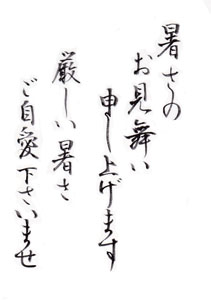 暑さの
お見舞い
申し上げます
厳しい暑さ
ご自愛下さいませ